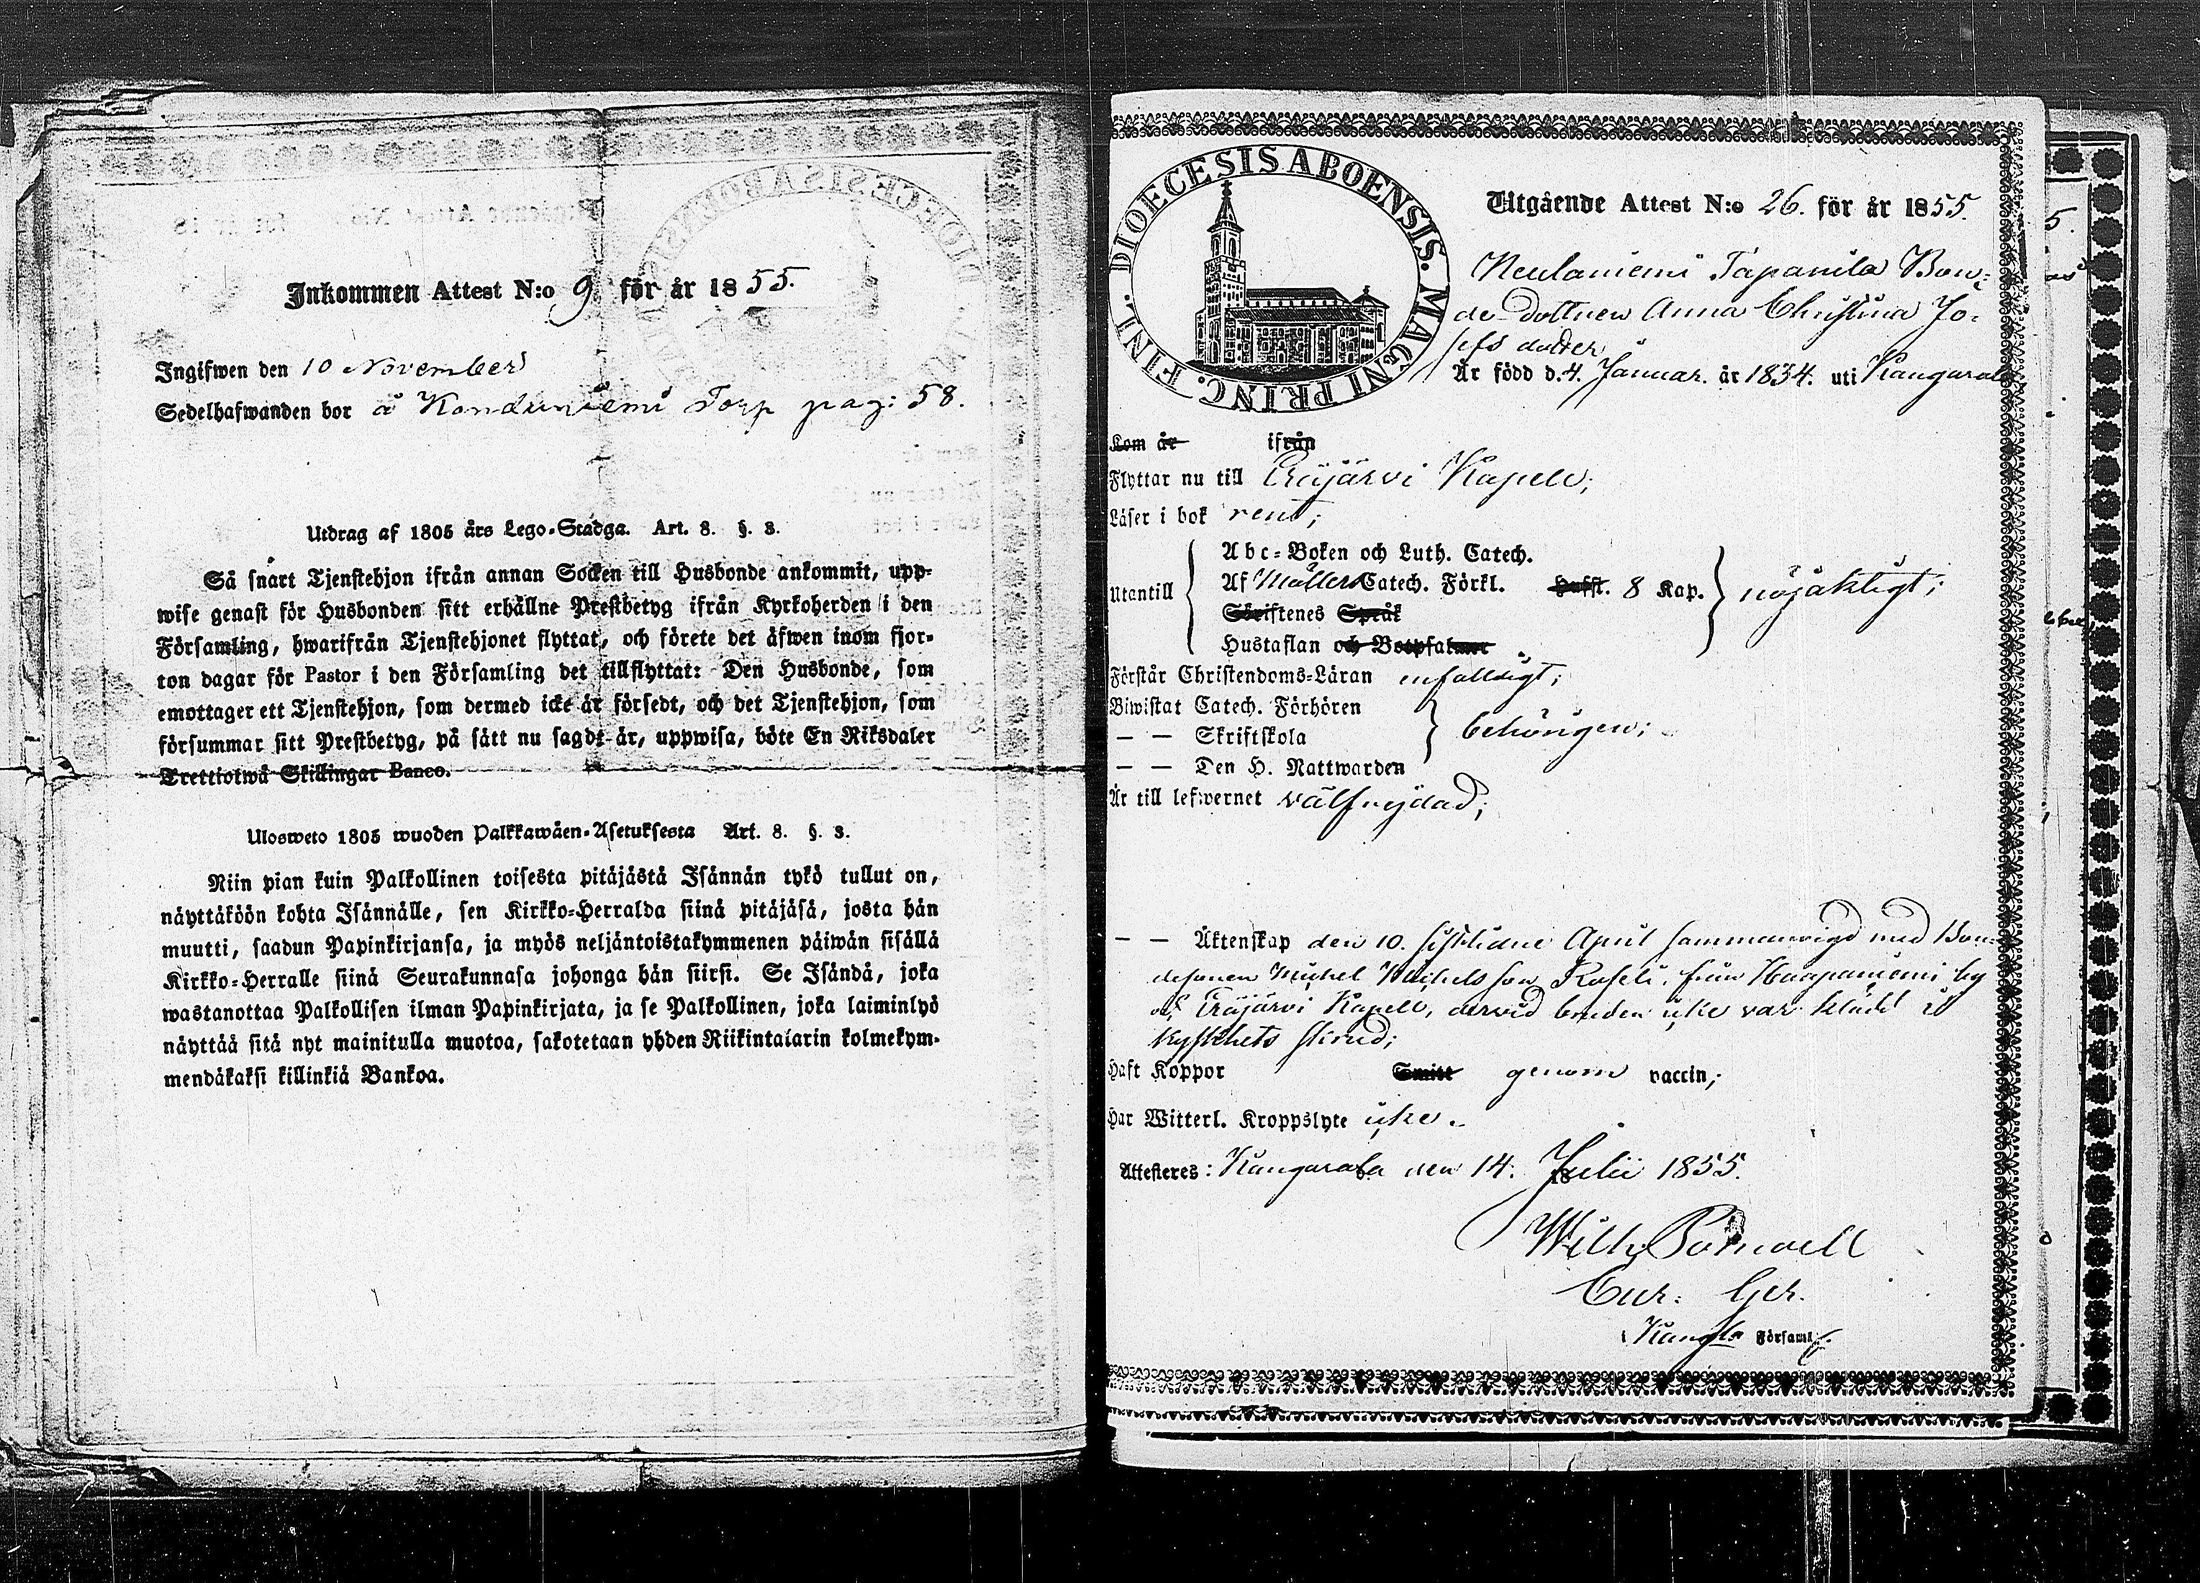 Inkommen Attest N:o 9 för år 1855.
Ingifwen den 10 November
Sedelhafwanden bor å Konduniemi Torp pag: 58.
Utdrag af 1805 års Lego-Stadga. Art. 8. §. 3.
Så snart Tjenstehjon ifrån annan Socken till Husbonde ankommit, upp-
wise genast för Husbonden sitt erhållne Prestbetyg ifrån Kyrkoherden i den
Församling, hwarifrån Tjenstehjonet flyttat, och förete det äfwen inom fjor-
ton dagar för Pastor i den Församling det tillflyttat: Den Husbonde, som
emottager ett Tjenstehjon, som dermed icke är försedt, och det Tjenstehjon, som
försummar sitt Prestbetyg, på sätt nu sagdt är, uppwisa, böte En Riksdaler
Trettiotwå Skillingar Banco.
Ulosweto 1805 wuoden Palkkawäen-Asetuksesta Art. 8. §. 3.
Niin pian kuin Palkollinen toisesta pitäjästä Isännän tykö tullut on,
näyttäköön kohta Isännälle, sen Kirkko-Herralda siinä pitäjäsä, josta hän
muutti, saadun Papinkirjansa, ja myös neljäntoistakymmenen päiwän sisällä
Kirkko-Herralle siinä Seurakunnasa johonga hän siirsi. Se Isändä, joka
wastanottaa Palkollisen ilman Papinkirjata, ja se Palkollinen, joka laiminlyö
näyttää sitä nyt mainitulla muotoa, sakotetaan yhden Riikintalarin kolmekym-
mendäkaksi killinkiä Bankoa.
DIOECESIS ABOENSIS. MAGNI PRINC. FINL.
Utgående Attest N:o 26. för år 1855.
Neulaniemi Tapanila Bon-
de-dottren Anna Christina Jo-
sefsdotter
Är född d. 4. Januar. år 1834. uti Kangasala
Kom år ifrån
Flyttar nu till Eräjärvi Kapell;
Läser i bok rent;
Utantill
Abc-Boken och Luth. Catech.
Af Möllers Catech. Förkl. 8 Kap. nöjaktigt;
Skriftenes Språk
Hustaflan och Botpsalmer
Förstår Christendoms-Läran enfalldigt;
Biwistat Catech. Förhören
— — Skriftskola behörigen;
— — Den H. Nattwarden
Är till lefwernet välfrejdad;
— — Äktenskap den 10. sistlidne April sammanvigd med Bon-
desonen Michel Michelsson Rafeli, från Haapaniemi by
af Eräjärvi Kapell, dervid bruden icke var klädd i
kyskhets skrud;
Haft Koppor Smitt genom vaccin;
Har Witterl. Kroppslyte icke.
Attesteres: Kangasala den 14. Julii 1855.
Wilh.
Cur: Ger.
i Kangla Församl.